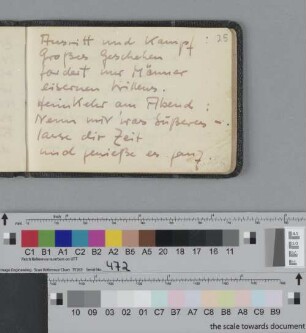 Ausritt und Kampf : 25
Großes Geschehen
fordert nur Männer
eisernen Willens.
Heimkehr am Abend :
Nenn mir was Süßeres -.
lasse dir Zeit
und genieße es ganz.
C1 B1 A1 C2 B2 A2 B5 A5 20 18 17 16 11
472
10 09 03 02 01 C7 B7 A7 C8 B8 A8 C9 B9
the scale towards document